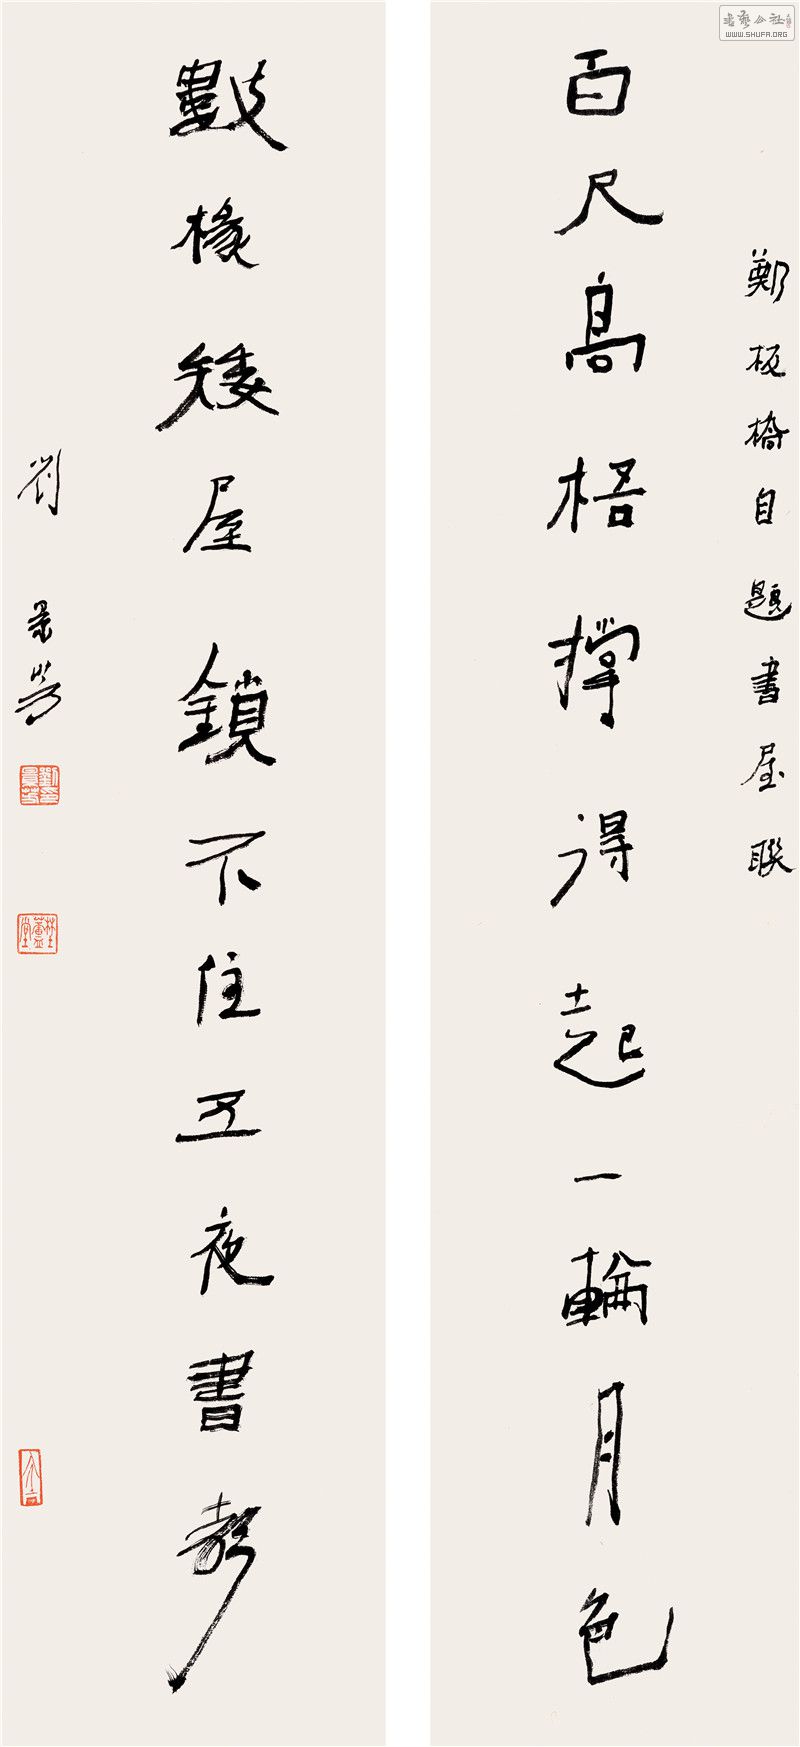 鄭板橋自題書屋聯
百尺高梧撑得起一輪月色
數椽矮屋鎖不住五夜書聲
劉景芳
書藝公社
WWW.SHUFA.ORG